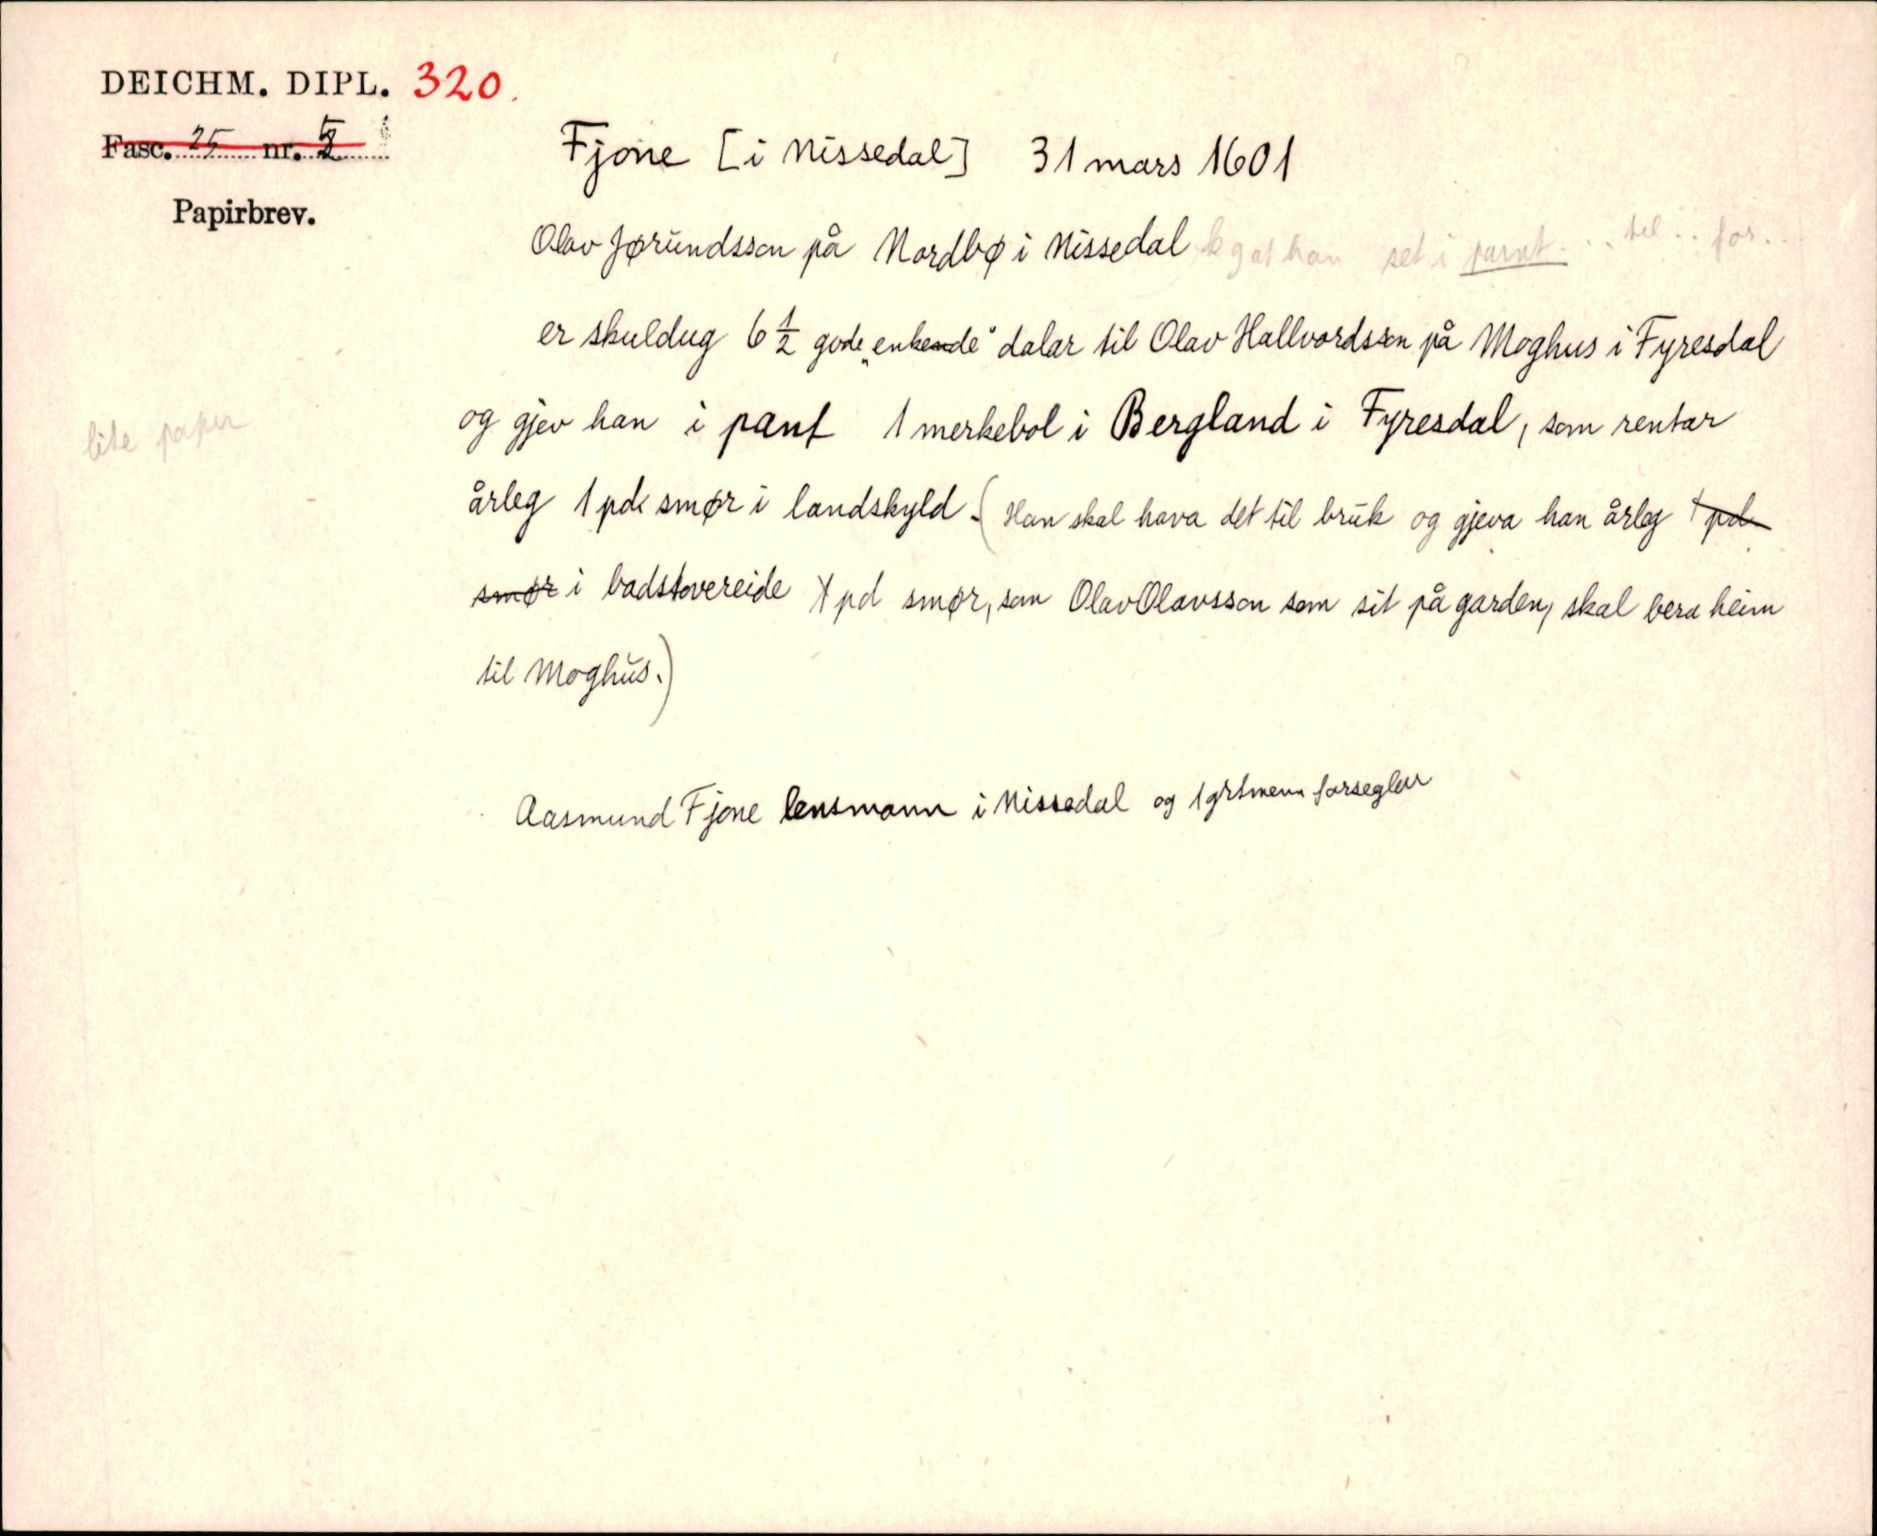 DEICHM. DIPL. 320.
Fasc. 25 nr. 5
Papirbrev.
Fjone [i Nissedal] 31 mars 1601
Olav Jørundsson på Nordbø i Nissedal han set i pant ... til .. for...
er skuldug 6 1/2 gode „enkende“ dalar til Olav Hallvordsson på Moghus i Fyresdal
og gjev han i pant 1 merkebol i Bergland i Fyresdal, som rentar
lite papir
årleg 1 pd smør i landskyld. (Han skal hava det til bruk og gjeva han årleg 1 pd
smør i badstovereide 1 pd smør, som Olav Olavsson som sit på garden, skal bera heim
til Moghus.)
Aasmund Fjone lensmann i Nissedal og lgrtmenn forseglar